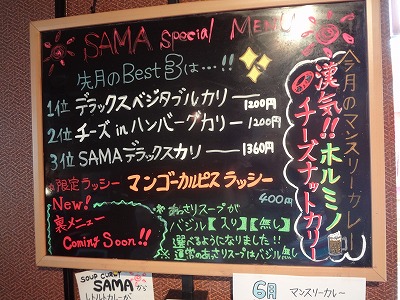 SAMA Special MENU
先月のBest3は…!!
1位 デラックスベジタブルカリー 1200円
2位 チーズinハンバーグカリー 1200円
3位 SAMAデラックスカリー 1360円
限定ラッシー マンゴーカルピスラッシー
400円
New!
裏メニュー
Coming Soon!!
あさりスープが
バジル【入り】【無し】
選べるようになりました!!
通常のあさりスープはバジル無し
今月のマンスリーカレー
漢気!!ホルミン
チーズナットカリー
SOUP CURRY
SAMA
から
レトルトカレーが
6月 マンスリーカレー